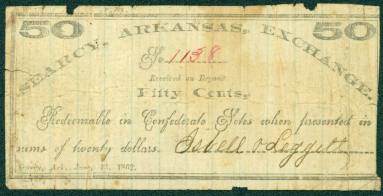 50 SEARCY, ARKANSAS, EXCHANGE. 50
No 1158
Received on Deposit
Fifty Cents,
Redeemable in Confederate Notes when presented in
sums of twenty dollars. Isbell & Leggett
Searcy, Ark., 1862.